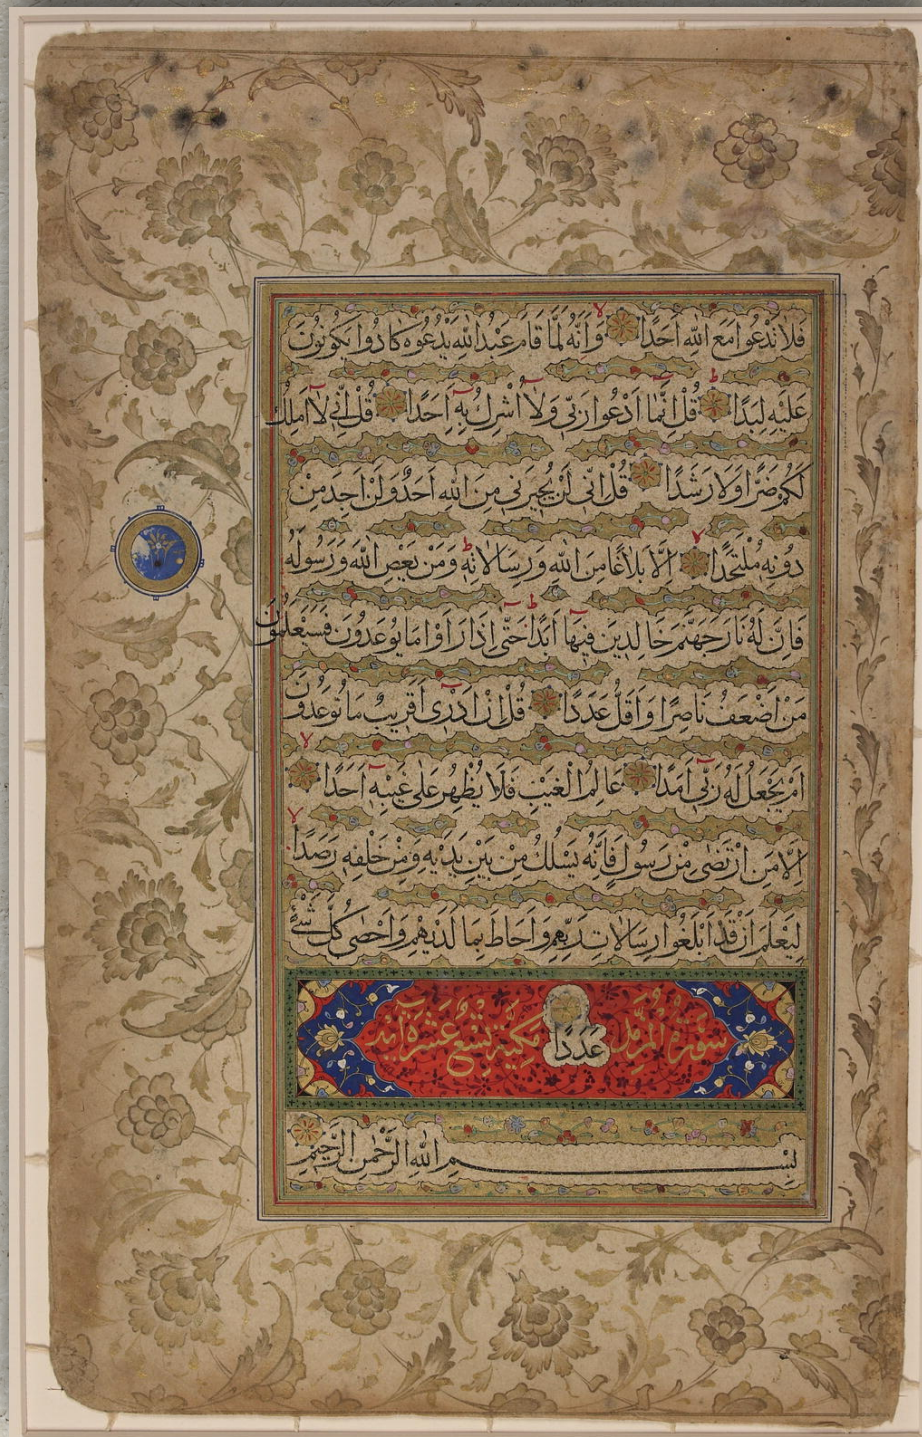 فَلَا تَدْعُوا مَعَ اللّٰهِ اَحَدًا وَاَنَّهُ لَمَّا قَامَ عَبْدُ اللّٰهِ يَدْعُوهُ كَادُوا يَكُونُونَ
عَلَيْهِ لِبَدًا قُلْ اِنَّمَا اَدْعُوا رَبِّي وَلَا اُشْرِكُ بِهِ اَحَدًا قُلْ اِنِّي لَا اَمْلِكُ
لَكُمْ ضَرًّا وَلَا رَشَدًا قُلْ اِنِّي لَنْ يُجِيرَنِي مِنَ اللّٰهِ اَحَدٌ وَلَنْ اَجِدَ مِنْ
دُونِهِ مُلْتَحَدًا اِلَّا بَلَاغًا مِنَ اللّٰهِ وَرِسَالَاتِهِ وَمَنْ يَعْصِ اللّٰهَ وَرَسُولَهُ
فَاِنَّ لَهُ نَارَ جَهَنَّمَ خَالِدِينَ فِيهَا اَبَدًا حَتّٰى اِذَا رَاَوْا مَا يُوعَدُونَ فَسَيَعْلَمُونَ
مَنْ اَضْعَفُ نَاصِرًا وَاَقَلُّ عَدَدًا قُلْ اِنْ اَدْرِي اَقَرِيبٌ مَا تُوعَدُونَ
اَمْ يَجْعَلُ لَهُ رَبِّي اَمَدًا عَالِمُ الْغَيْبِ فَلَا يُظْهِرُ عَلٰى غَيْبِهِ اَحَدًا
اِلَّا مَنِ ارْتَضٰى مِنْ رَسُولٍ فَاِنَّهُ يَسْلُكُ مِنْ بَيْنِ يَدَيْهِ وَمِنْ خَلْفِهِ رَصَدًا
لِيَعْلَمَ اَنْ قَدْ اَبْلَغُوا رِسَالَاتِ رَبِّهِمْ وَاَحَاطَ بِمَا لَدَيْهِمْ وَاَحْصٰى كُلَّ شَيْءٍ
سُورَةُ الْمُزَّمِّلِ عَدَدًا مَكِّيَّةٌ تِسْعُ عَشْرَةَ آيَةً
بِسْمِ اللّٰهِ الرَّحْمٰنِ الرَّحِيمِ